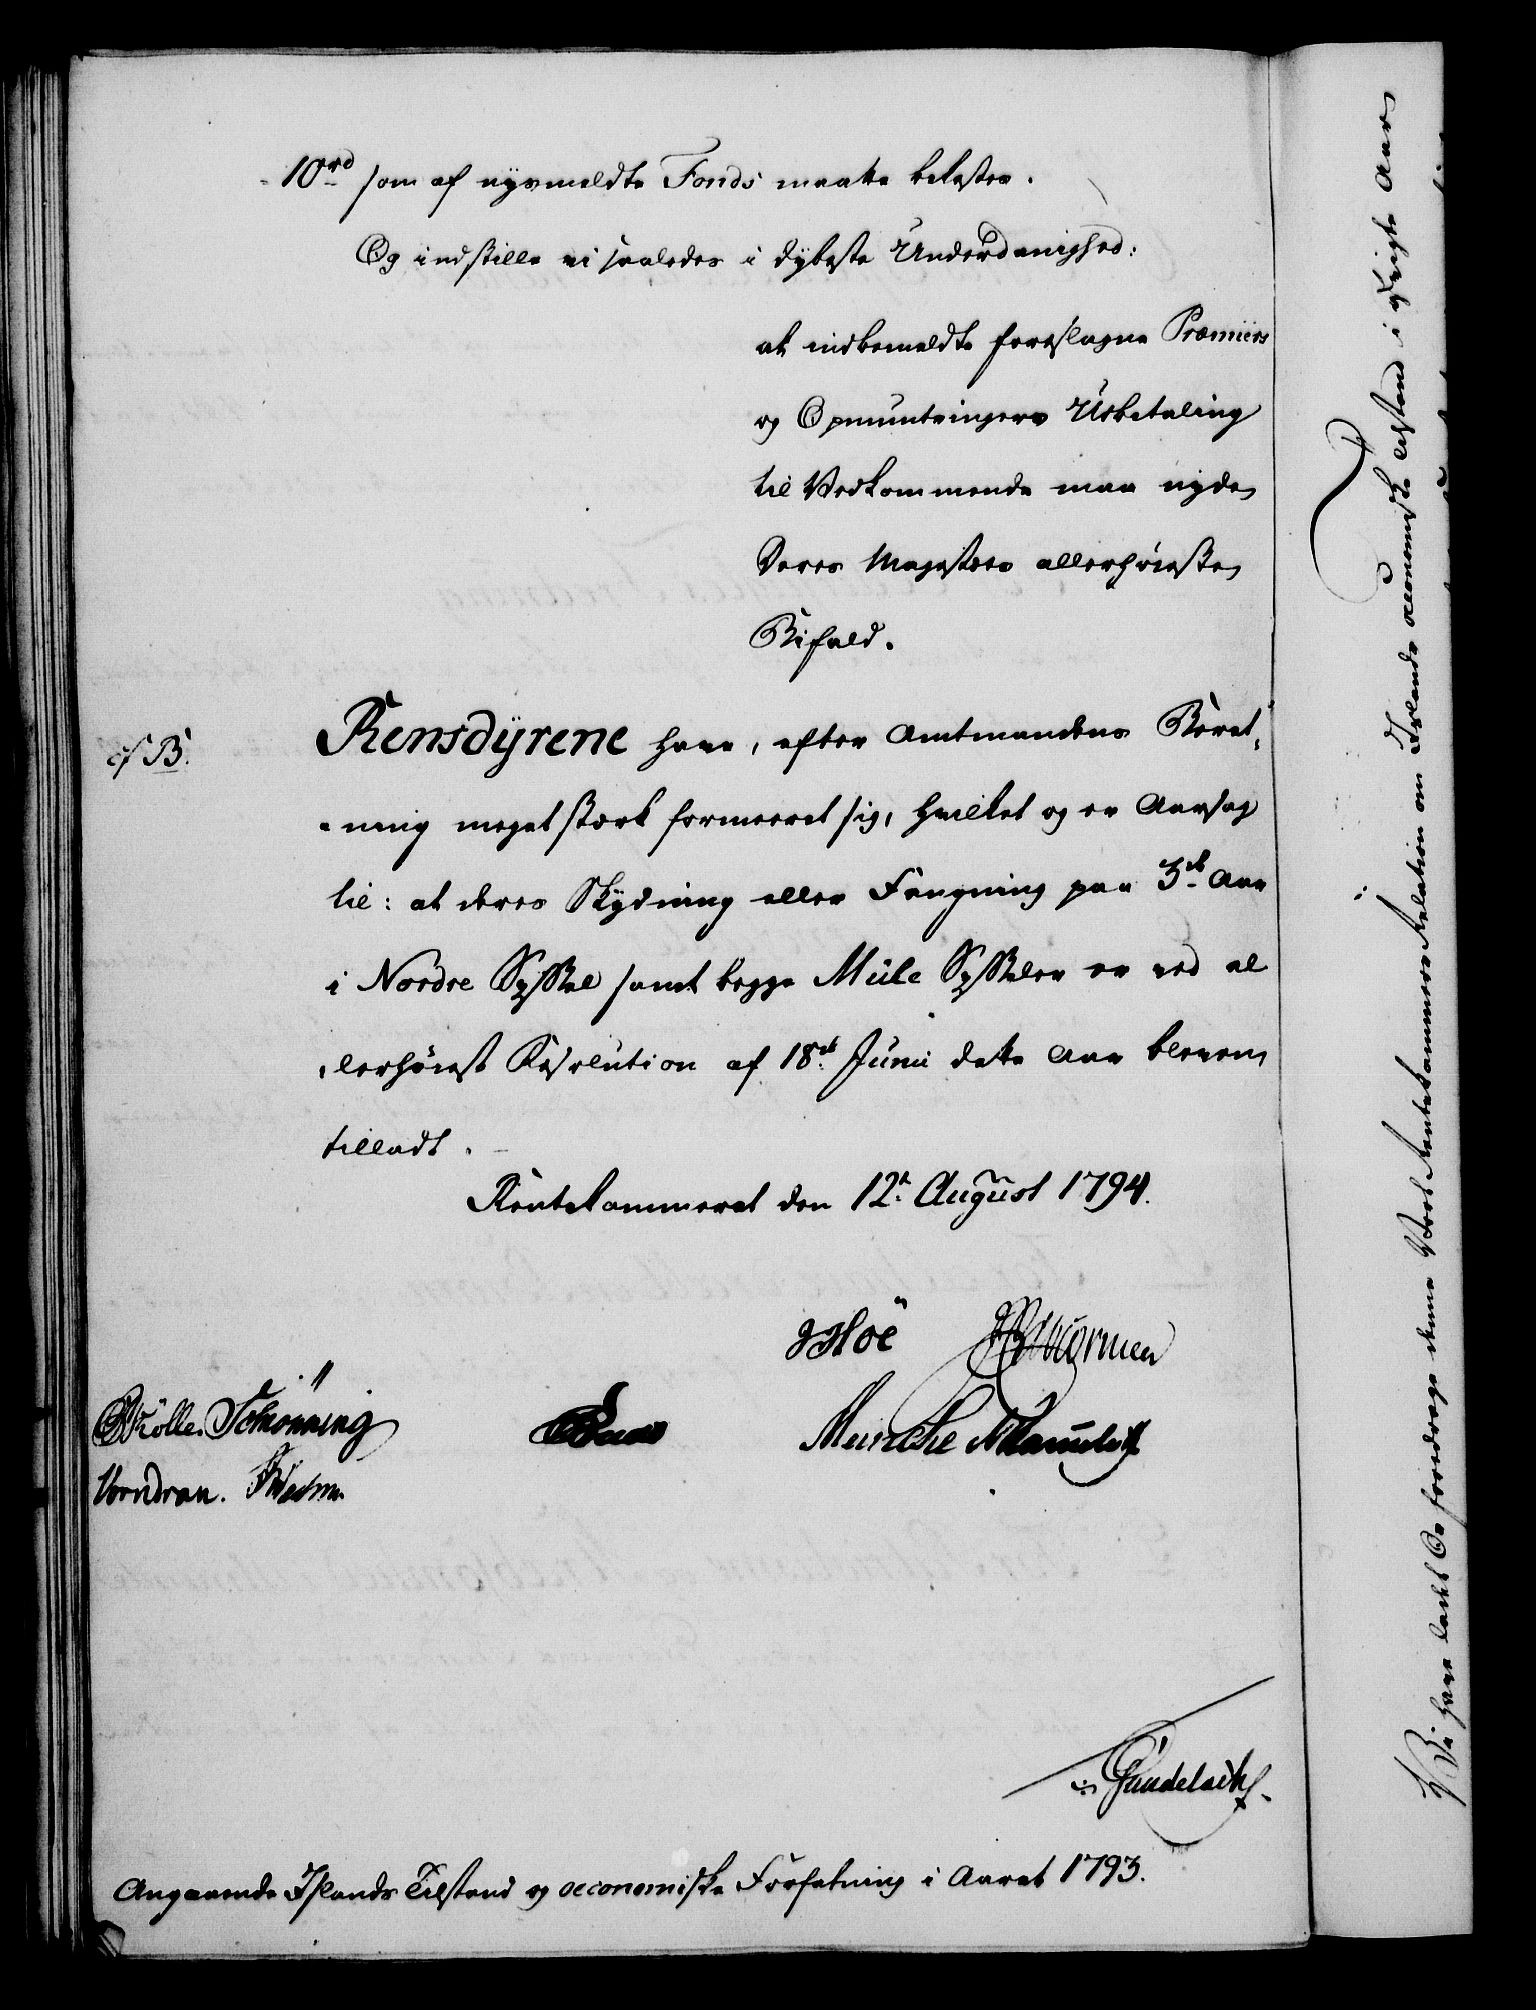 10rd som af nysmeldte Fonds maatte bekostes.
Og indstille vi saaledes i dybeste Underdanighed:
at indbemeldte foreslagne Præmiers
og Opmuntringers Udbetaling
til Vedkommende maa nyde
Deres Majestæts allerhøieste
Bifald.
cf B.
Rensdÿrene have, efter Amtmandens Beret-
-ning meget stærk formeeret sig, hvilket og er Aarsag
til: at deres Skÿdning eller Fangning paa 3de Aar
i Nordre Syssel samt begge Mule Sysseler er ved al
lerhøiest Resolution af 18de Junii dette Aar bleven
tilladt.
Rentekammeret den 12te August 1794.
Hoë Wormen
Schønning
Meincke
Vorndran.
Gundelach.
Angaaende Islands Tilstand og oeconomiske Forfatning i Aaret 1793.
Vi have ladet Os foredrage denne Vort Rentekammers Relation om Islands oeconomiske Tilstand i Aar